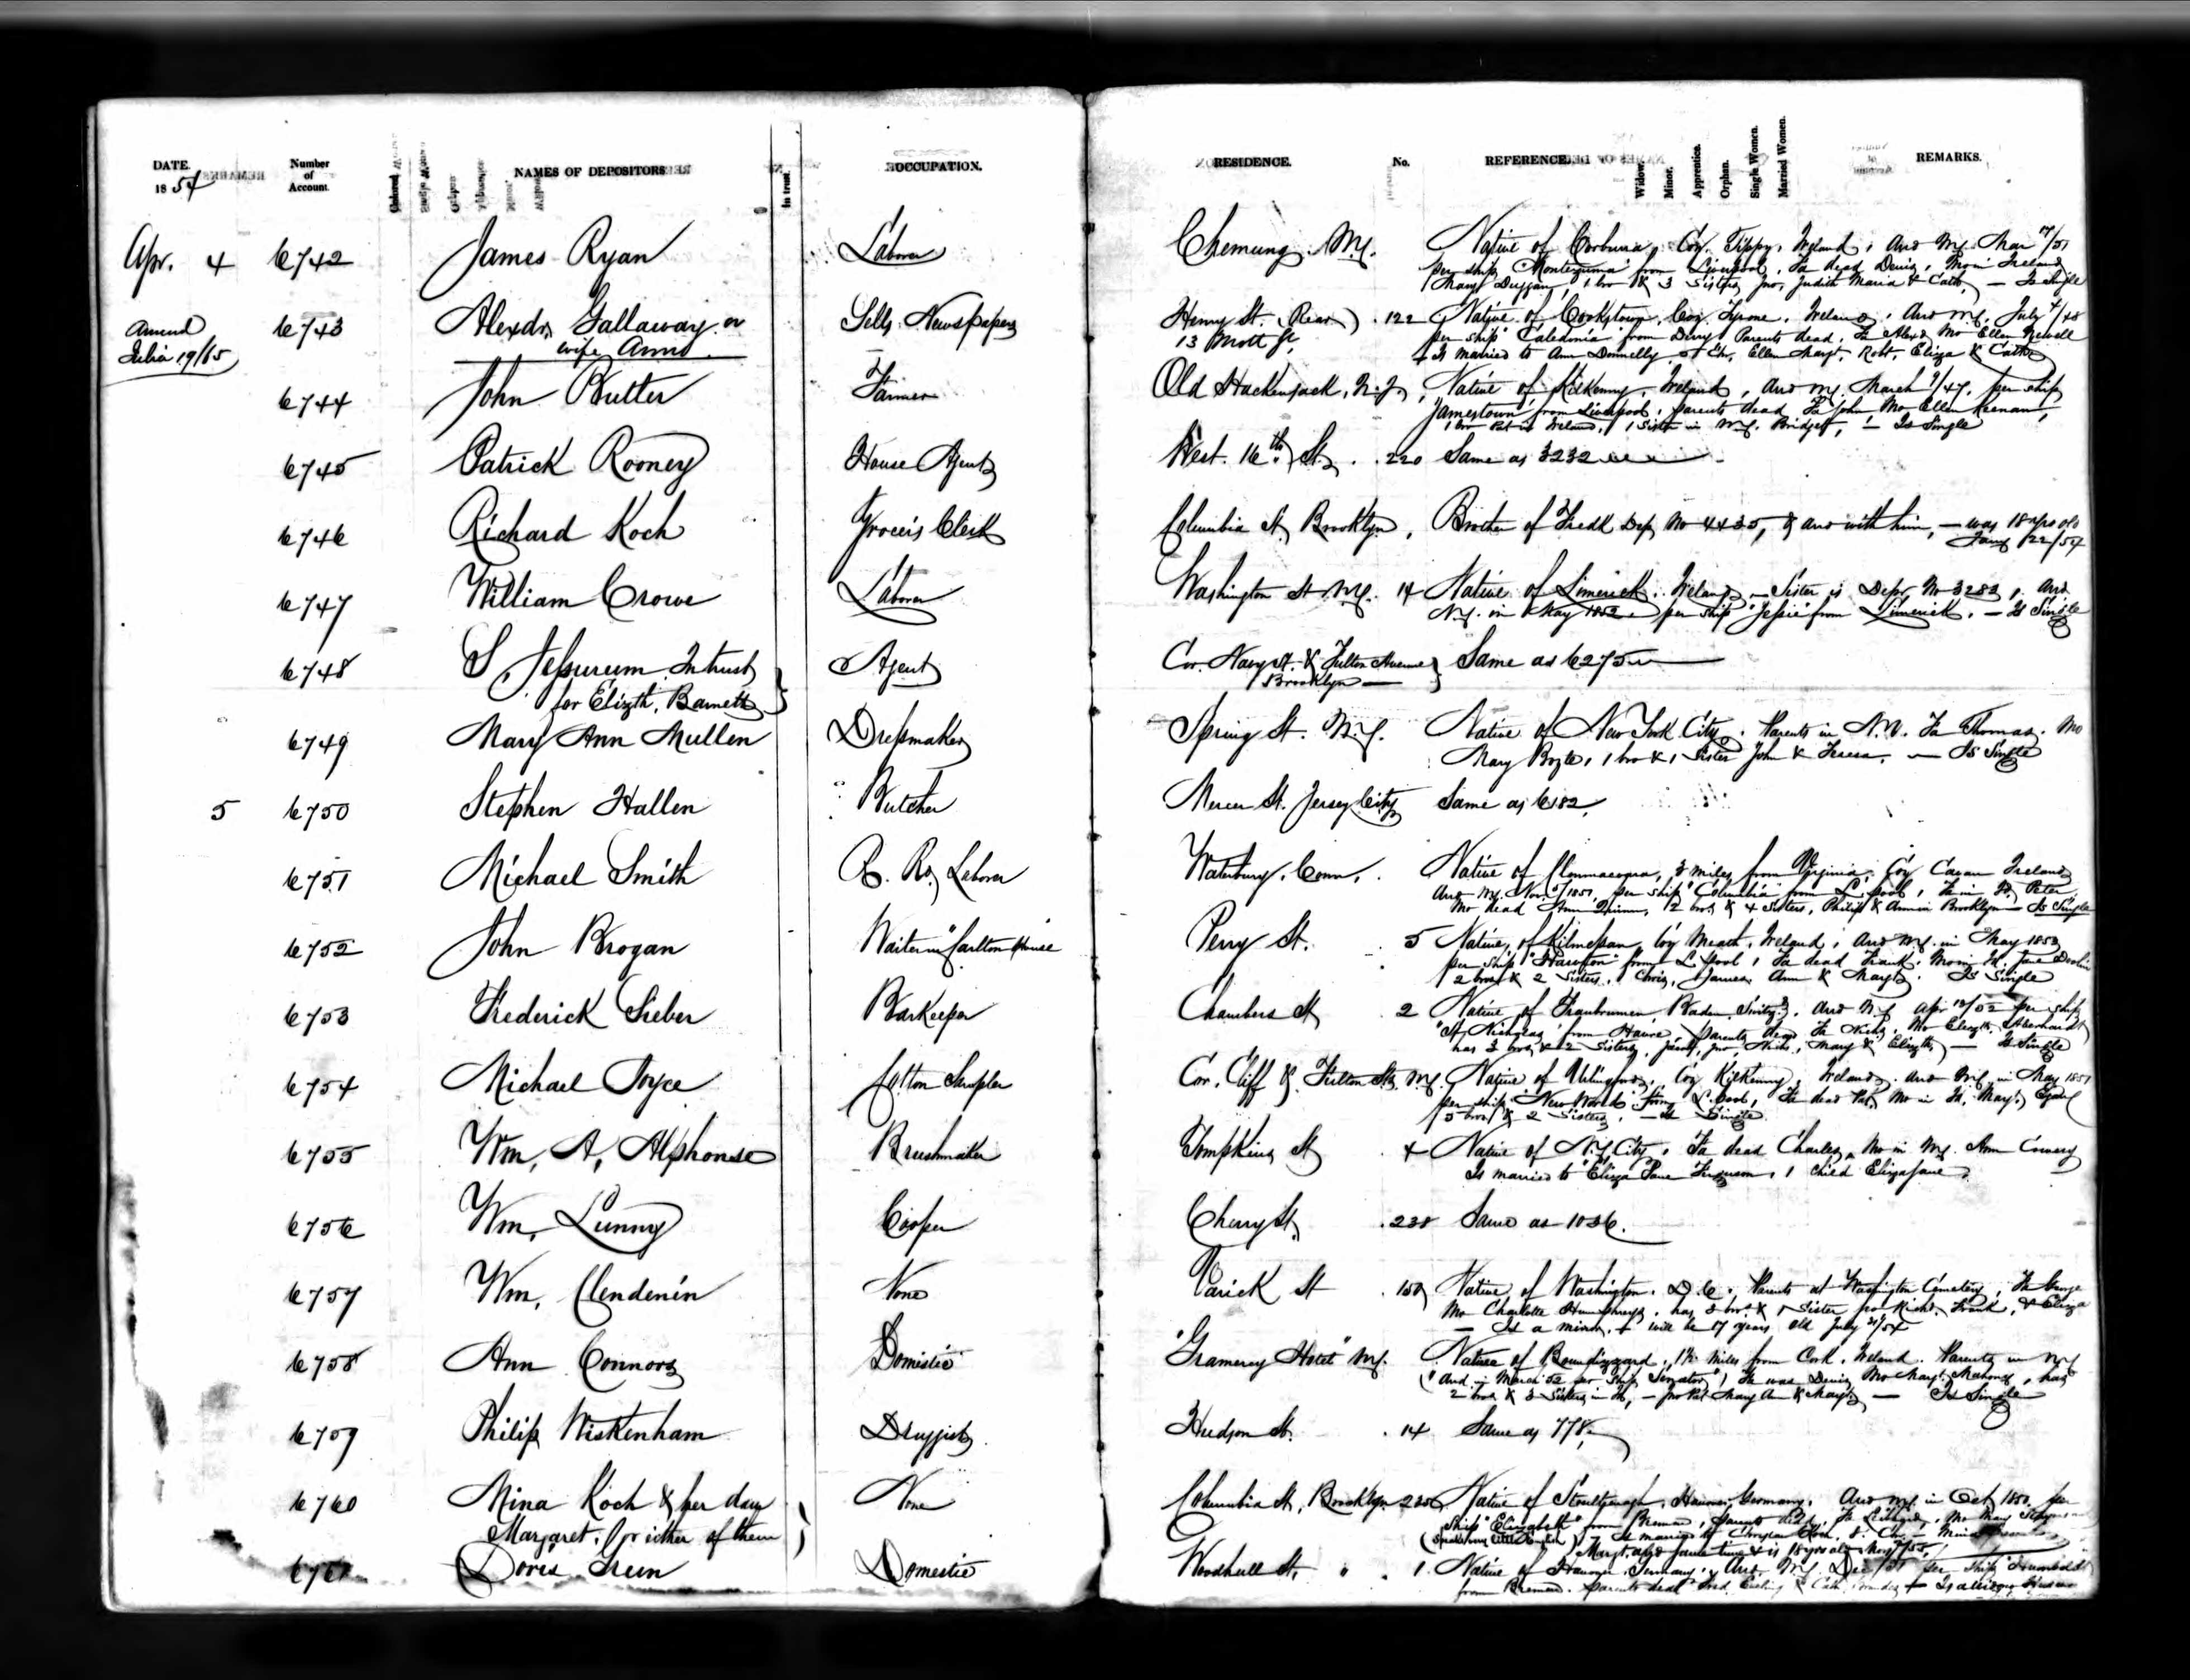 DATE. Number of Account. NAMES OF DEPOSITORS In trust. OCCUPATION. RESIDENCE. No. REFERENCE. Widow. Minor. Apprentice. Orphan. Single Women. Married Women. REMARKS.
1854
Apr. 4 6742 James Ryan Laborer Chemung N.Y. Native of Coy. Tippy. Ireland, Arrd N.Y. Mar /51
per ship "Montezuma" from Liverpool, Fa dead Denis, Mo in Ireland
Mary Duggan, 1 bro & 3 Sisters, Jno, Judith Maria & Cath. — Is Single
Amend 6743 Alexdr. Gallaway or Sells Newspapers Henry St. (Rear) 122 Native of Cookstown, Coy. Tyrone, Ireland, Arrd N.Y. July /48
Julia 19/65 wife Ann 13 Mott St, per ship "Caledonia" from Derry, Parents dead, Fa Alexd Mo Ellen Newell
Is married to Ann Donnelly 5 Chn, Ellen Margt, Robt, Eliza & Cath
6744 John Butler Farmer Old Hackensack, N.J. Native of Kilkenny, Ireland, Arrd N.Y. March /47, per ship
"Jamestown" from Liverpool, parents dead Fa John Mo Ellen Keenan,
1 bro Pat in Ireland, 1 Sister in N.Y. Bridget, — Is Single
6745 Patrick Rooney House Agent West. 16th St. 220 Same as 3232
6746 Richard Koch Grocer's Clerk Columbia St, Brooklyn, Brother of Fredk Dep No 4435, & arrd with him, — was 18 yrs old
Jany 22/54
6747 William Crowe Laborer Washington St N.Y. 14 Native of Limerick, Ireland — Sister is Depr. No 3283, Arrd
N.Y. in May 1852 per ship "Jessie" from Limerick. — Is Single
6748 S. Jessurum In trust Agent Cor. Navy St. & Fulton Avenue Same as 6275
for Elizth. Barnett Brooklyn —
6749 Mary Ann Mullen Dressmaker Spring St. N.Y. Native of New York City. Parents in N.Y. Fa Thomas. Mo
Mary Boyle, 1 bro & 1 Sister John & Teresa. — Is Single
5 6750 Stephen Hallen Butcher Mercer St. Jersey City Same as 6182,
6751 Michael Smith R. Rd. Laborer Waterbury, Conn. Native of 3 miles from Virginia, Coy Cavan Ireland
Arrd N.Y. Nov. /1851, per ship "Columbia" from L.pool, Fa in Id. Peter,
Mo dead Ann 2 bros & 4 Sisters, Philip & Ann in Brooklyn — Is Single
6752 John Brogan Waiter in "Carlton House Perry St. 5 Native of Kilmessan, Coy Meath, Ireland, Arrd N.Y. in May 1850
per ship from L.pool, Fa dead Frank, Mo in Id. Jane
2 bros & 2 Sisters, Chris, James, Ann & Margt. Is Single
6753 Frederick Sieber Barkeeper Chambers St 2 Native of Baden, Arrd N.Y. Apr /52 per ship
"St Nicholas" from Havre, Parents dead Fa Nichs, Mo Elizth.
has 3 bros & 2 Sisters, Jacob, Jno, Nichs, Mary & Elizth — Is Single
6754 Michael Joyce Cotton Sampler Cor. Cliff & Fulton Sts, N.Y. Native of Urlingford, Coy Kilkenny, Ireland, Arrd N.Y. in May 1851
per ship "New World" from L.pool, Fa dead Pat, Mo in Id, Margt. Egan
5 bros & 2 Sisters, — Is Single
6755 Wm. A. Alphonse Brushmaker Tompkins St 4 Native of N.Y. City, Fa dead Charles, Mo in N.Y. Ann
Is married to Eliza Jane Ferguson, 1 child Eliza Jane
6756 Wm. Lunny Cooper Cherry St. 238 Same as 1036.
6757 Wm. Clendenin None Varick St 150 Native of Washington, D.C. Parents at Washington Cemetery, Fa George
Mo Charlotte Humphreys, has 3 bros & 1 Sister Jno Richd, Frank, & Eliza
— Is a minor, + will be 17 years old July /54
6758 Ann Connors Domestic "Gramercy Hotel" N.Y. Native of 1½ miles from Cork, Ireland. Parents in N.Y
Arrd in March 52 per Ship "Senator", Fa was Denis Mo Margt. Mahoney, has
2 bros & 3 Sisters in Id, — Jno Pat Mary Ann & Margt — Is Single
6759 Philip Wiskenham Druggist Hudson St. 14 Same as 778,
6760 Mina Koch & her daur None Columbia St, Brooklyn Native of Hanover, Germany. Arrd N.Y. in Oct 1850 per
Margaret. (or either of them) Ship "Elizabeth" from Bremen, parents dead,
6761 Doris Domestic Woodhull St. " 1 Native of Hanover, Germany, Arrd N.Y. Dec per ship "Humboldt"
from Bremen. Parents dead